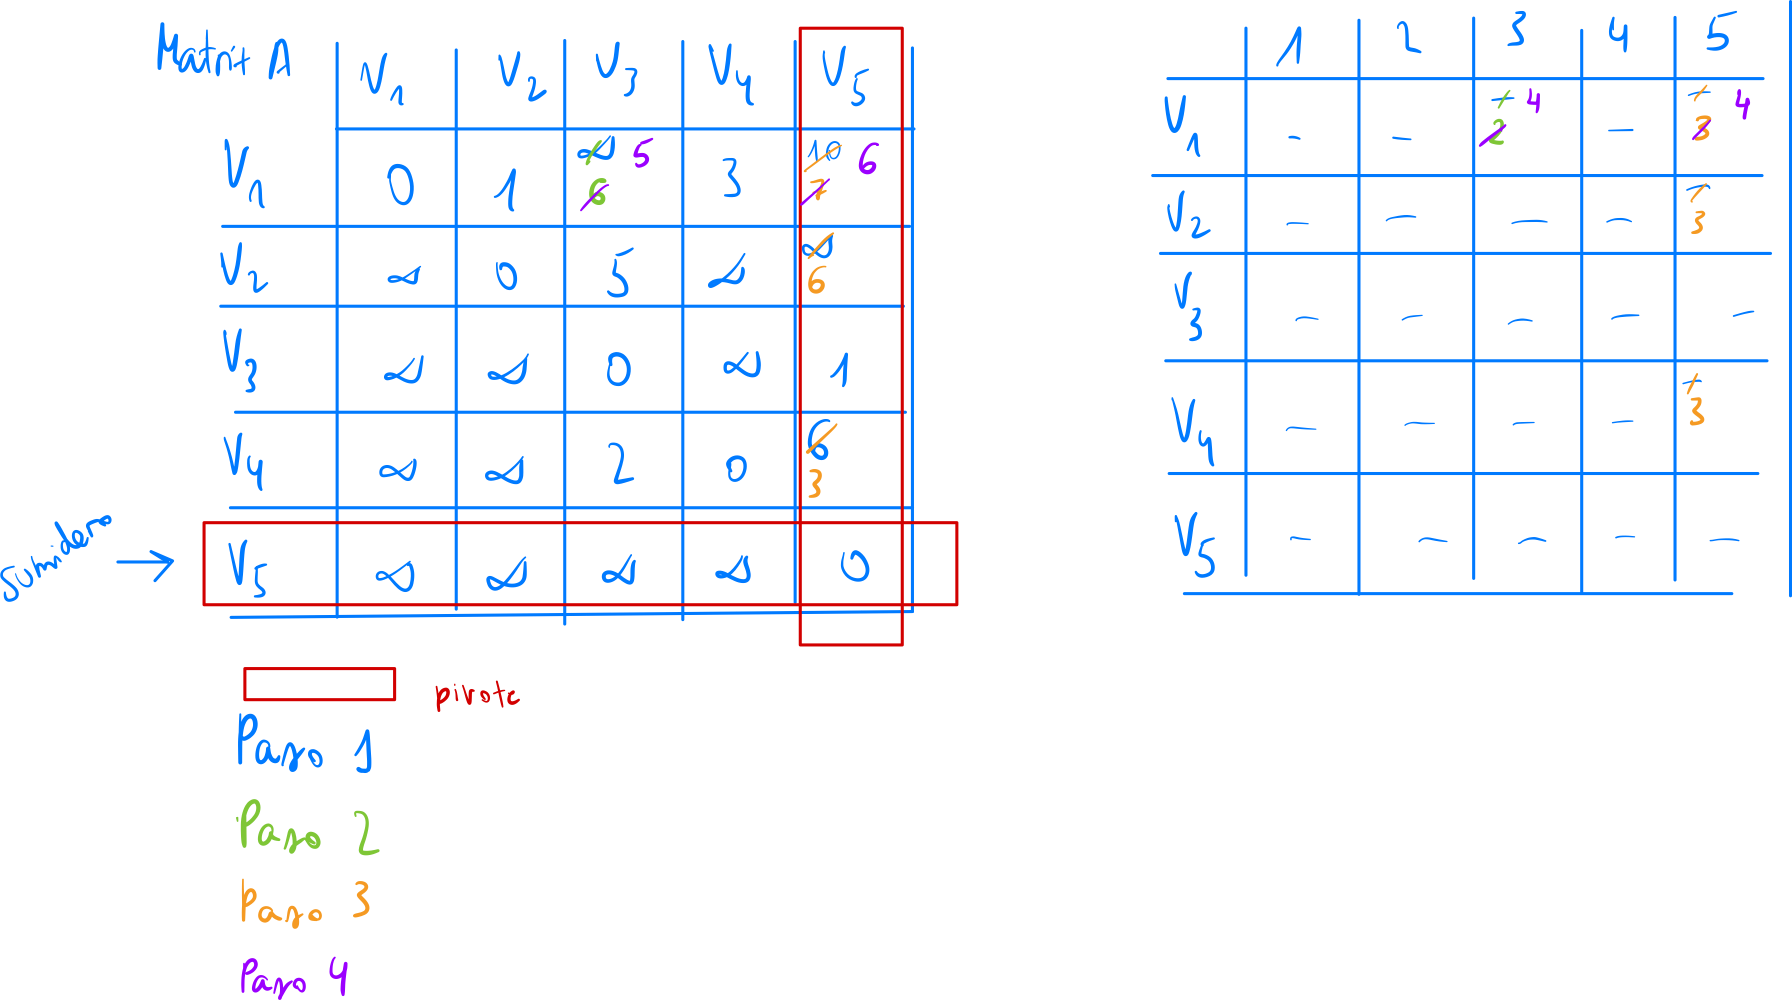 Matrit A V1 V2 V3 V4 V5
V1 0 1 ∞ 6 5 3 10 7 6
V2 ∞ 0 5 ∞ ∞ 6
V3 ∞ ∞ 0 ∞ 1
V4 ∞ ∞ 2 0 6 3
sumidero → V5 ∞ ∞ ∞ ∞ 0
pivote
Paso 1
Paso 2
Paso 3
Paso 4
1 2 3 4 5
V1 - - - 2 4 - - 3 4
V2 - - - - - 3
V3 - - - - -
V4 - - - - - 3
V5 - - - - -